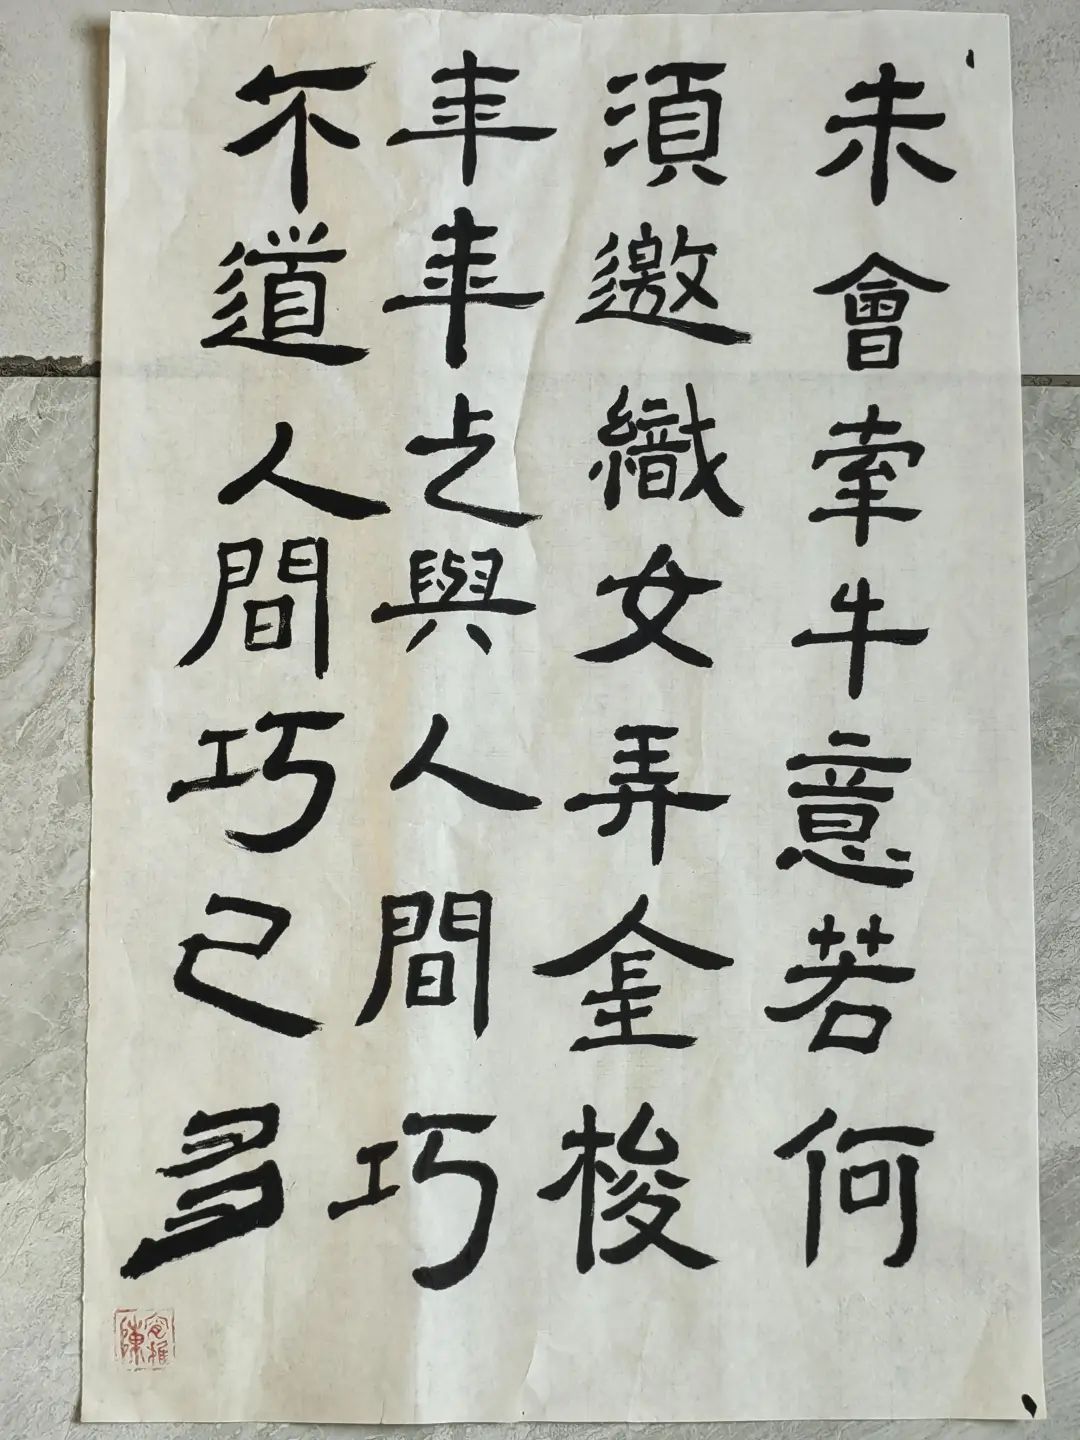 未會牽牛意若何
須邀織女弄金梭
年年乞與人間巧
不道人間巧已多
陳